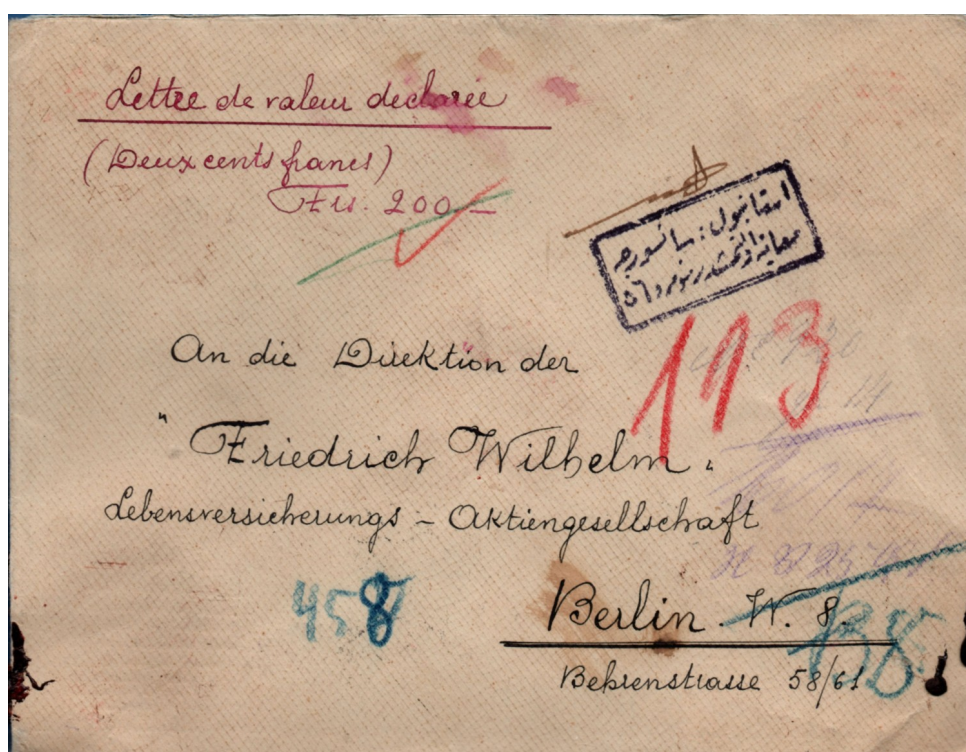 Lettre de valeur declarée
(Deux cents francs)
Frs. 200 –
استانبول : سانسورجه
معاينه اولنمشدر نومرو ٥٦
An die Direktion der
"Friedrich Wilhelm"
113
Lebensversicherungs - Aktiengesellschaft
458
Berlin. W. 8.
Behrenstrasse 58/61